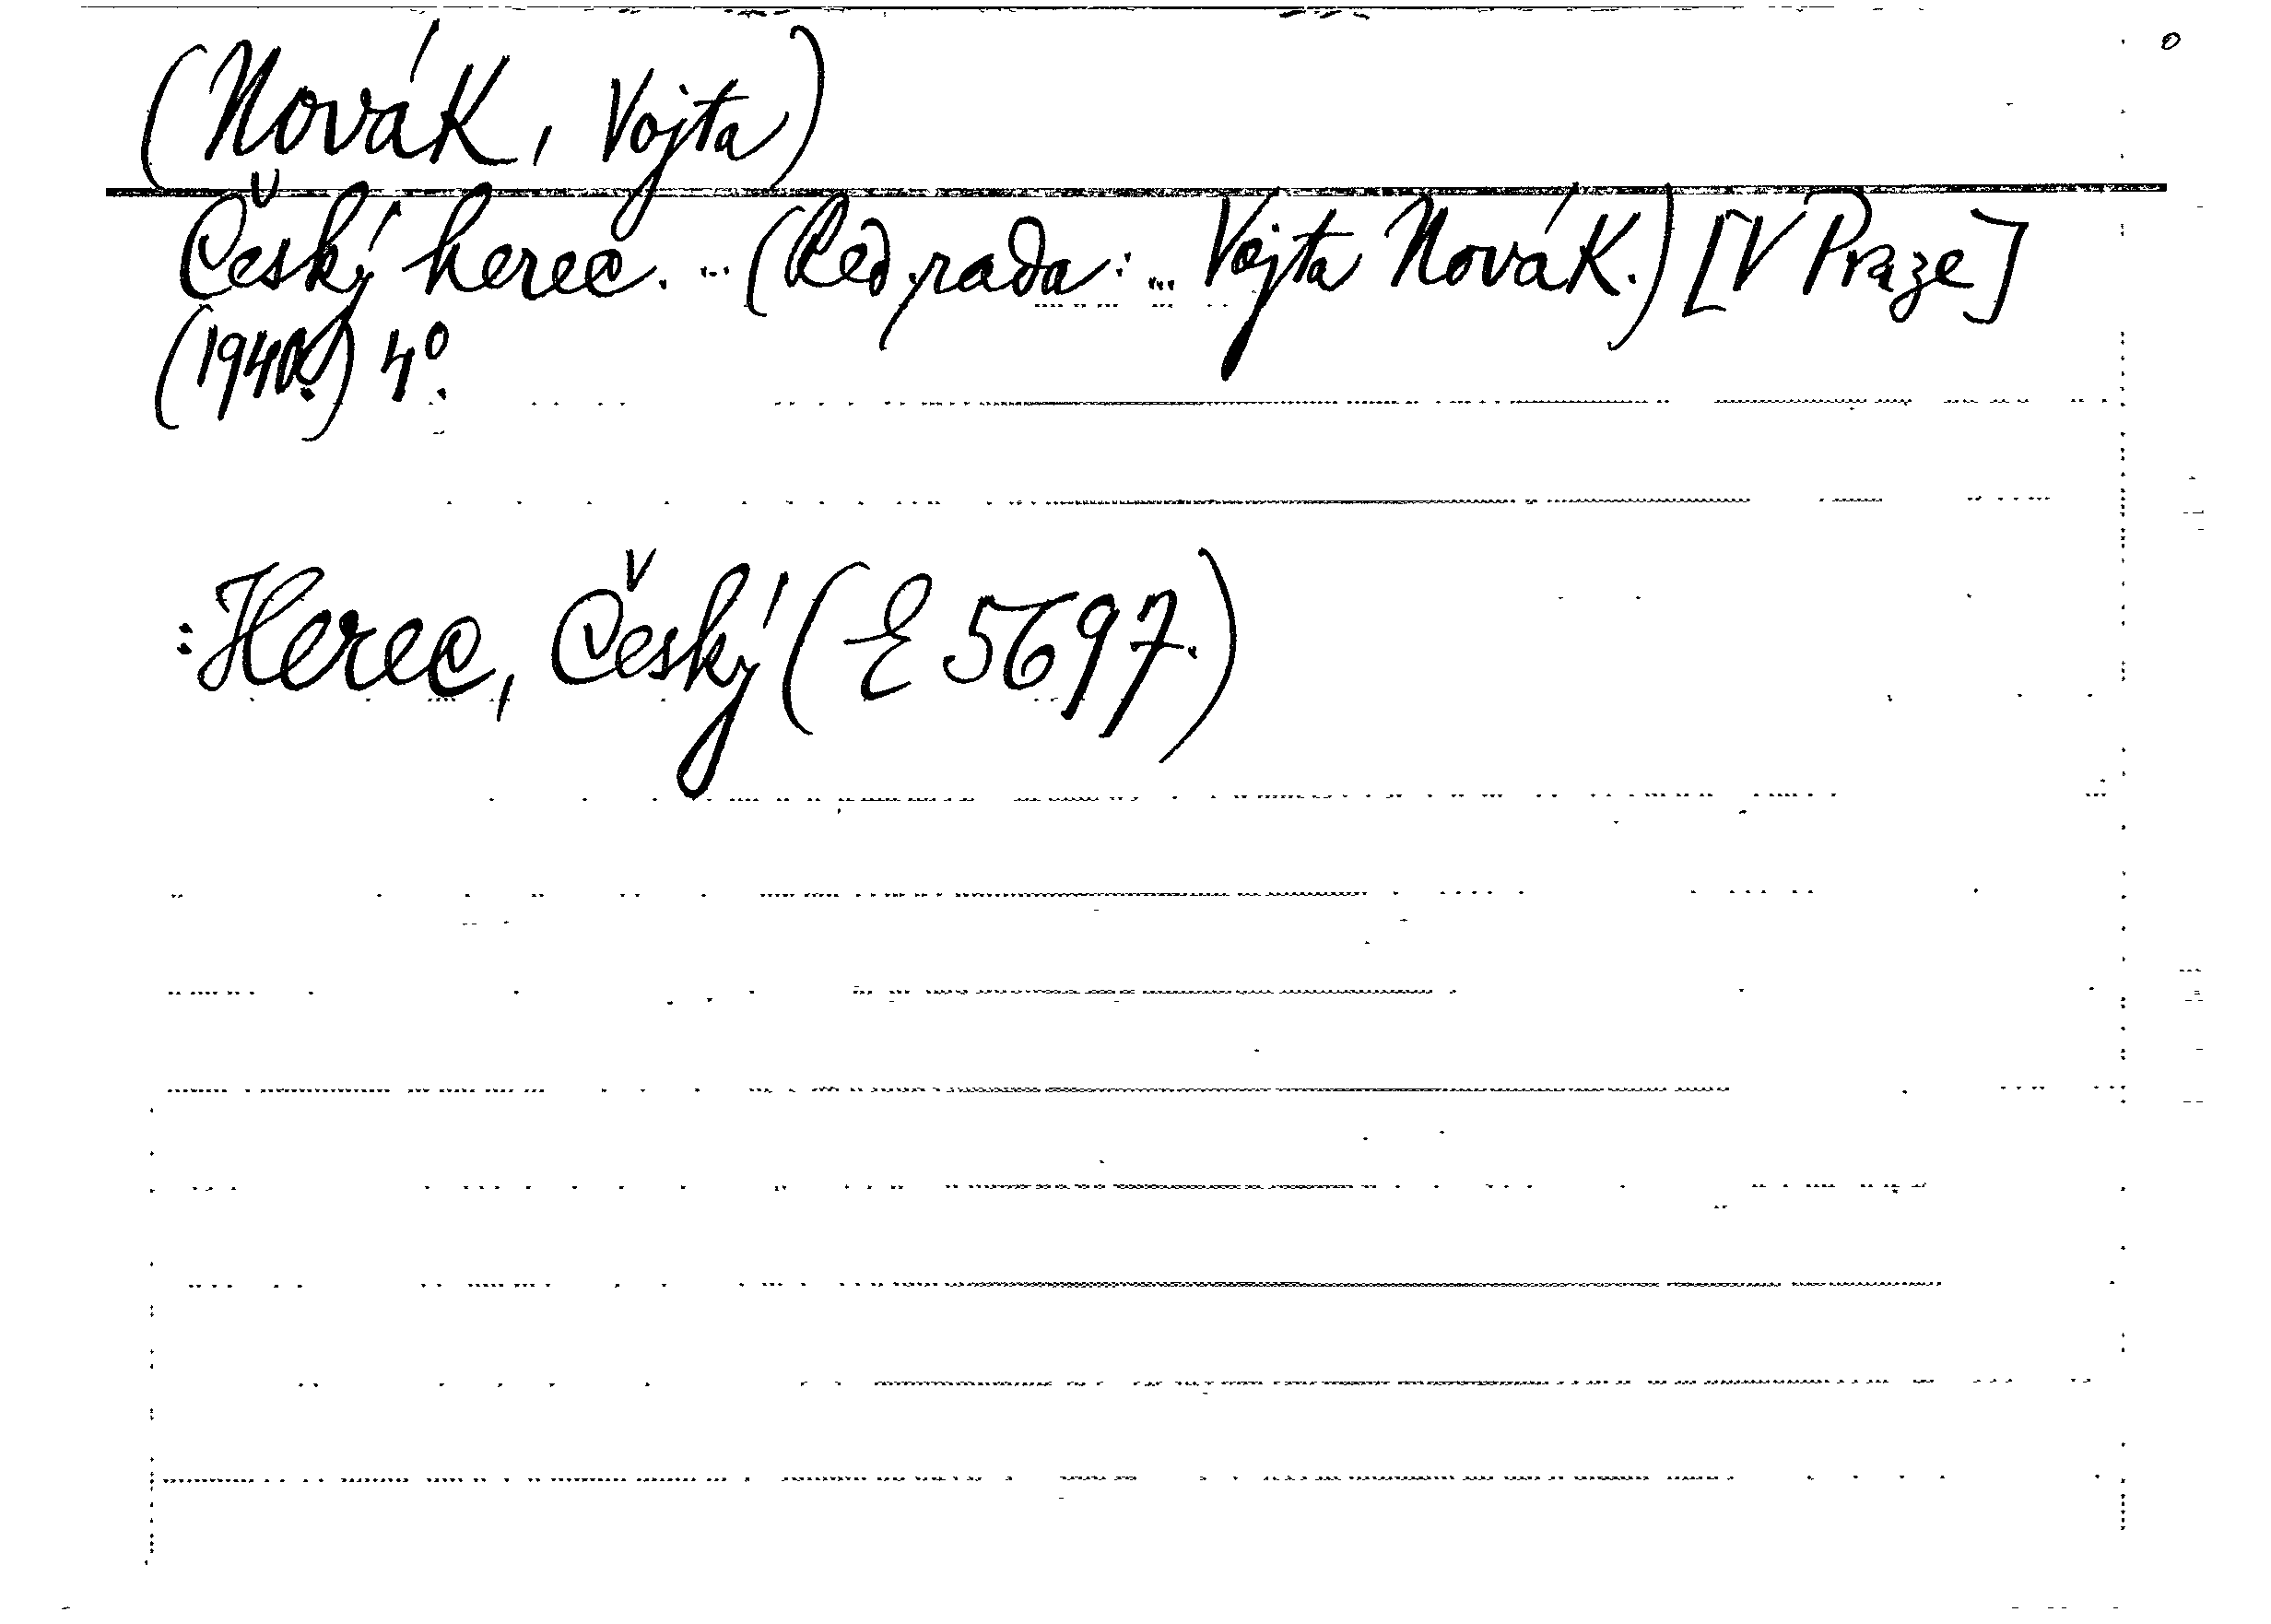 (Novák, Vojta)
Český herec. ... (Red. rada: ... Vojta Novák.) [V Praze]
(1940.) 4°.
:Herec, Český (E 5697.)